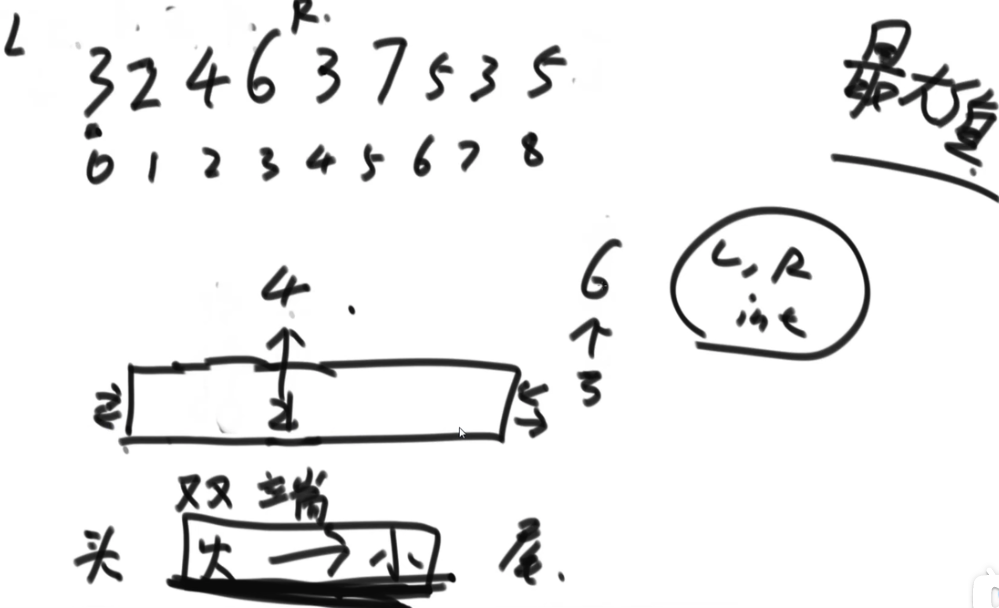 L R.
3 2 4 6 3 7 5 3 5
0 1 2 3 4 5 6 7 8
最大值
4
2
6
3
L, R
int
双端
头 大 → 小 尾